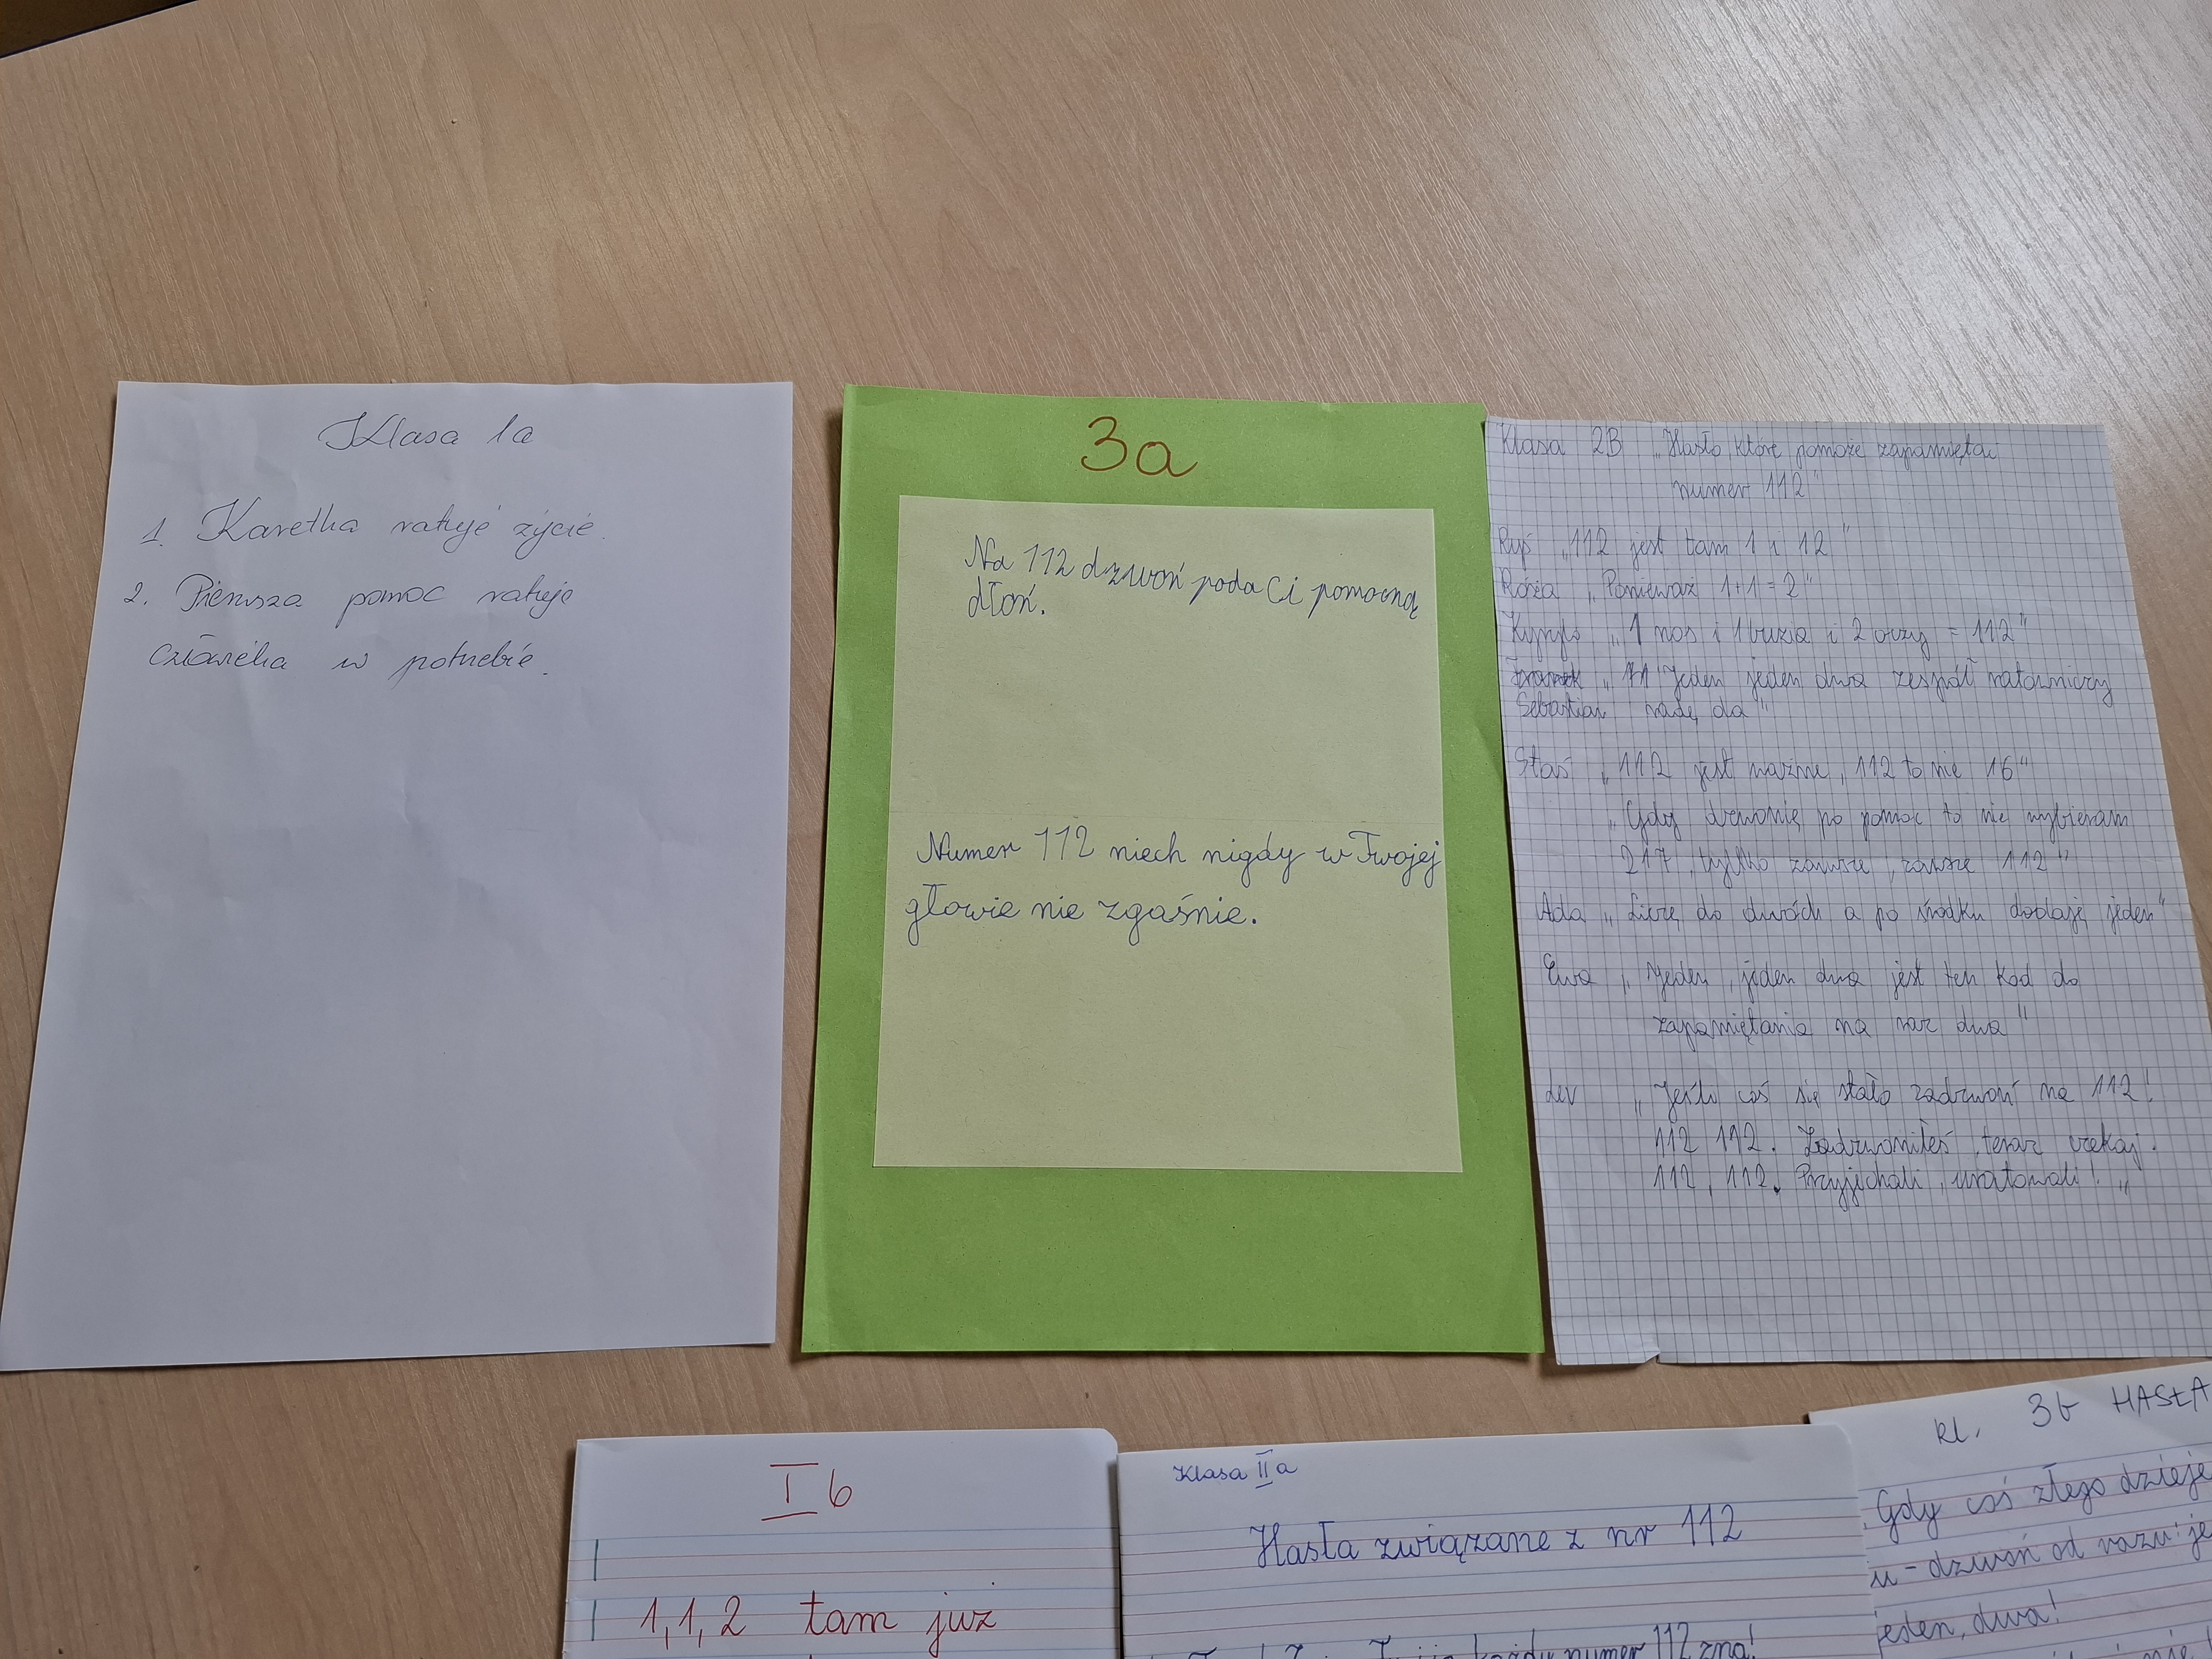 Klasa 1a
1. Karetka ratuje życie.
2. Pierwsza pomoc ratuje
człowieka w potrzebie.
3a
Na 112 dzwoń poda Ci pomocną
dłoń.
Numer 112 niech nigdy w Twojej
głowie nie zgaśnie.
Klasa 2B „Hasło, które pomoże zapamięta
numer 112"
Ryś „112 jest tam 1 i 12"
Róża „Ponieważ 1+1=2"
Kyrylo „1 nos i 1 buzia i 2 oczy = 112"
Franek „11 Jeden jeden dwa zespół ratowniczy
Sebastian radę da"
Staś „112 jest ważne, 112 to nie 16"
„Gdy dzwonię po pomoc to nie wybieram
217, tylko zawsze, zawsze 112"
Ada „Liczę do dwóch a po środku dodaję jeden"
Ewa „Jeden, jeden dwa jest ten kod do
zapamiętania na raz dwa"
Lev „Jeśli coś się stało zadzwoń na 112!
112 112. Zadzwoniłeś, teraz czekaj.
112, 112. Przyjechali, uratowali! „
I b
1,1,2 tam już
Klasa II a
Hasła związane z nr 112
każdy numer 112 zna!
kl. 3b HASŁA
Gdy coś złego dzieje
u - dzwoń od razu: je
jeden, dwa!